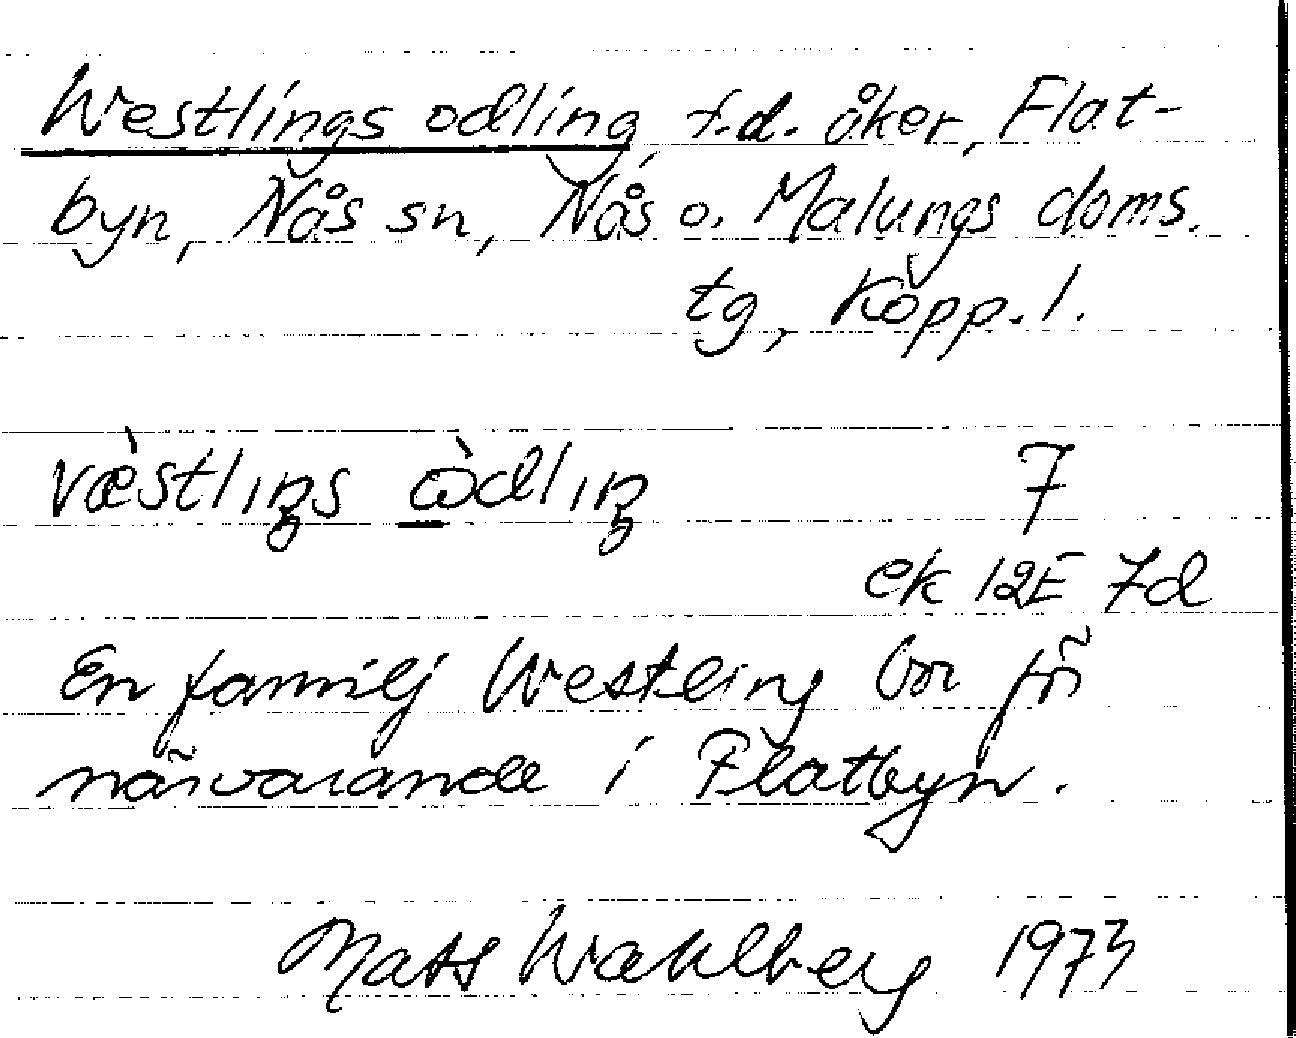 Westlings odling, f.d. åker, Flat-
byn, Nås sn, Nås o. Malungs doms.
tg, Kopp. l.
væ̀stlıŋs ὼ̲dlıŋ 7
ek 12E 7d
En familj Westling bor för
närvarande i Flatbyn.
Mats Wahlberg 1973